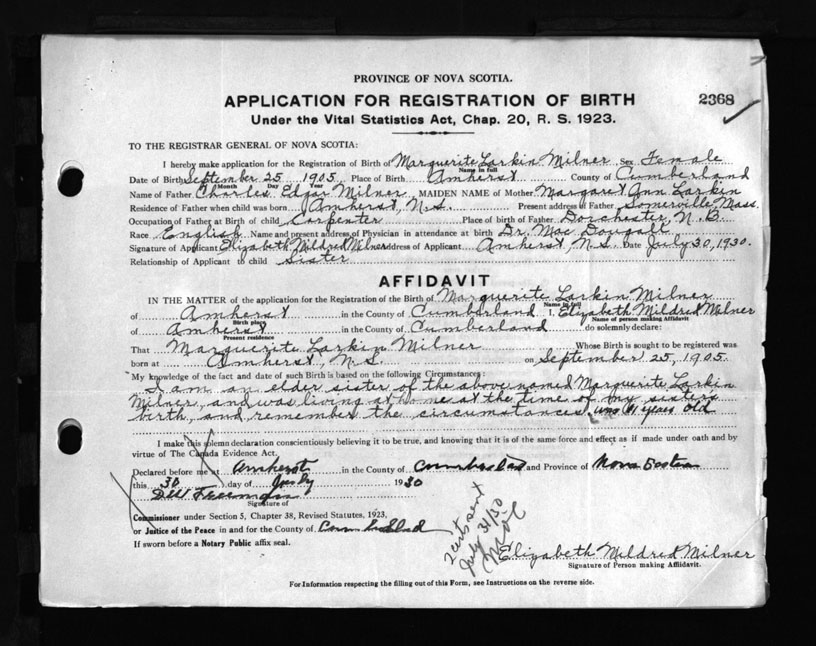 PROVINCE OF NOVA SCOTIA.
APPLICATION FOR REGISTRATION OF BIRTH 2368
Under the Vital Statistics Act, Chap. 20, R. S. 1923.
TO THE REGISTRAR GENERAL OF NOVA SCOTIA:
I hereby make application for the Registration of Birth of Marguerite Larkin Milner Sex Female
Name in full
Date of Birth September 25 1905 Place of Birth Amherst County of Cumberland
Month Day Year
Name of Father Charles Edgar Milner MAIDEN NAME of Mother Margaret Ann Larkin
Residence of Father when child was born Amherst, N.S. Present address of Father Somerville, Mass.
Occupation of Father at Birth of child Carpenter Place of birth of Father Dorchester, N.B.
Race English Name and present address of Physician in attendance at birth Dr. Mac Dougall
Signature of Applicant Elizabeth Mildred Milner Address of Applicant Amherst, N.S. Date July 30, 1930.
Relationship of Applicant to child Sister
AFFIDAVIT
IN THE MATTER of the application for the Registration of the Birth of Marguerite Larkin Milner
Name in full
of Amherst in the County of Cumberland I, Elizabeth Mildred Milner
Birth place Name of person making Affidavit
of Amherst in the County of Cumberland do solemnly declare:
Present residence
That Marguerite Larkin Milner Whose Birth is sought to be registered was
born at Amherst, N.S. on September 25, 1905.
My knowledge of the fact and date of such Birth is based on the following Circumstances:
I am an elder sister of the above named Marguerite Larkin
Milner, and was living at home at the time of my sisters
birth, and remember the circumstances. was 11 years old
I make this solemn declaration conscientiously believing it to be true, and knowing that it is of the same force and effect as if made under oath and by
virtue of The Canada Evidence Act.
Declared before me at Amherst in the County of Cumberland and Province of Nova Scotia
this 30 day of July 1930
Freeman
Signature of
Commissioner under Section 5, Chapter 38, Revised Statutes, 1923,
or Justice of the Peace in and for the County of Cumberland
If sworn before a Notary Public affix seal.
sent
July 31/30
Elizabeth Mildred Milner
Signature of Person making Affidavit.
For Information respecting the filling out of this Form, see Instructions on the reverse side.